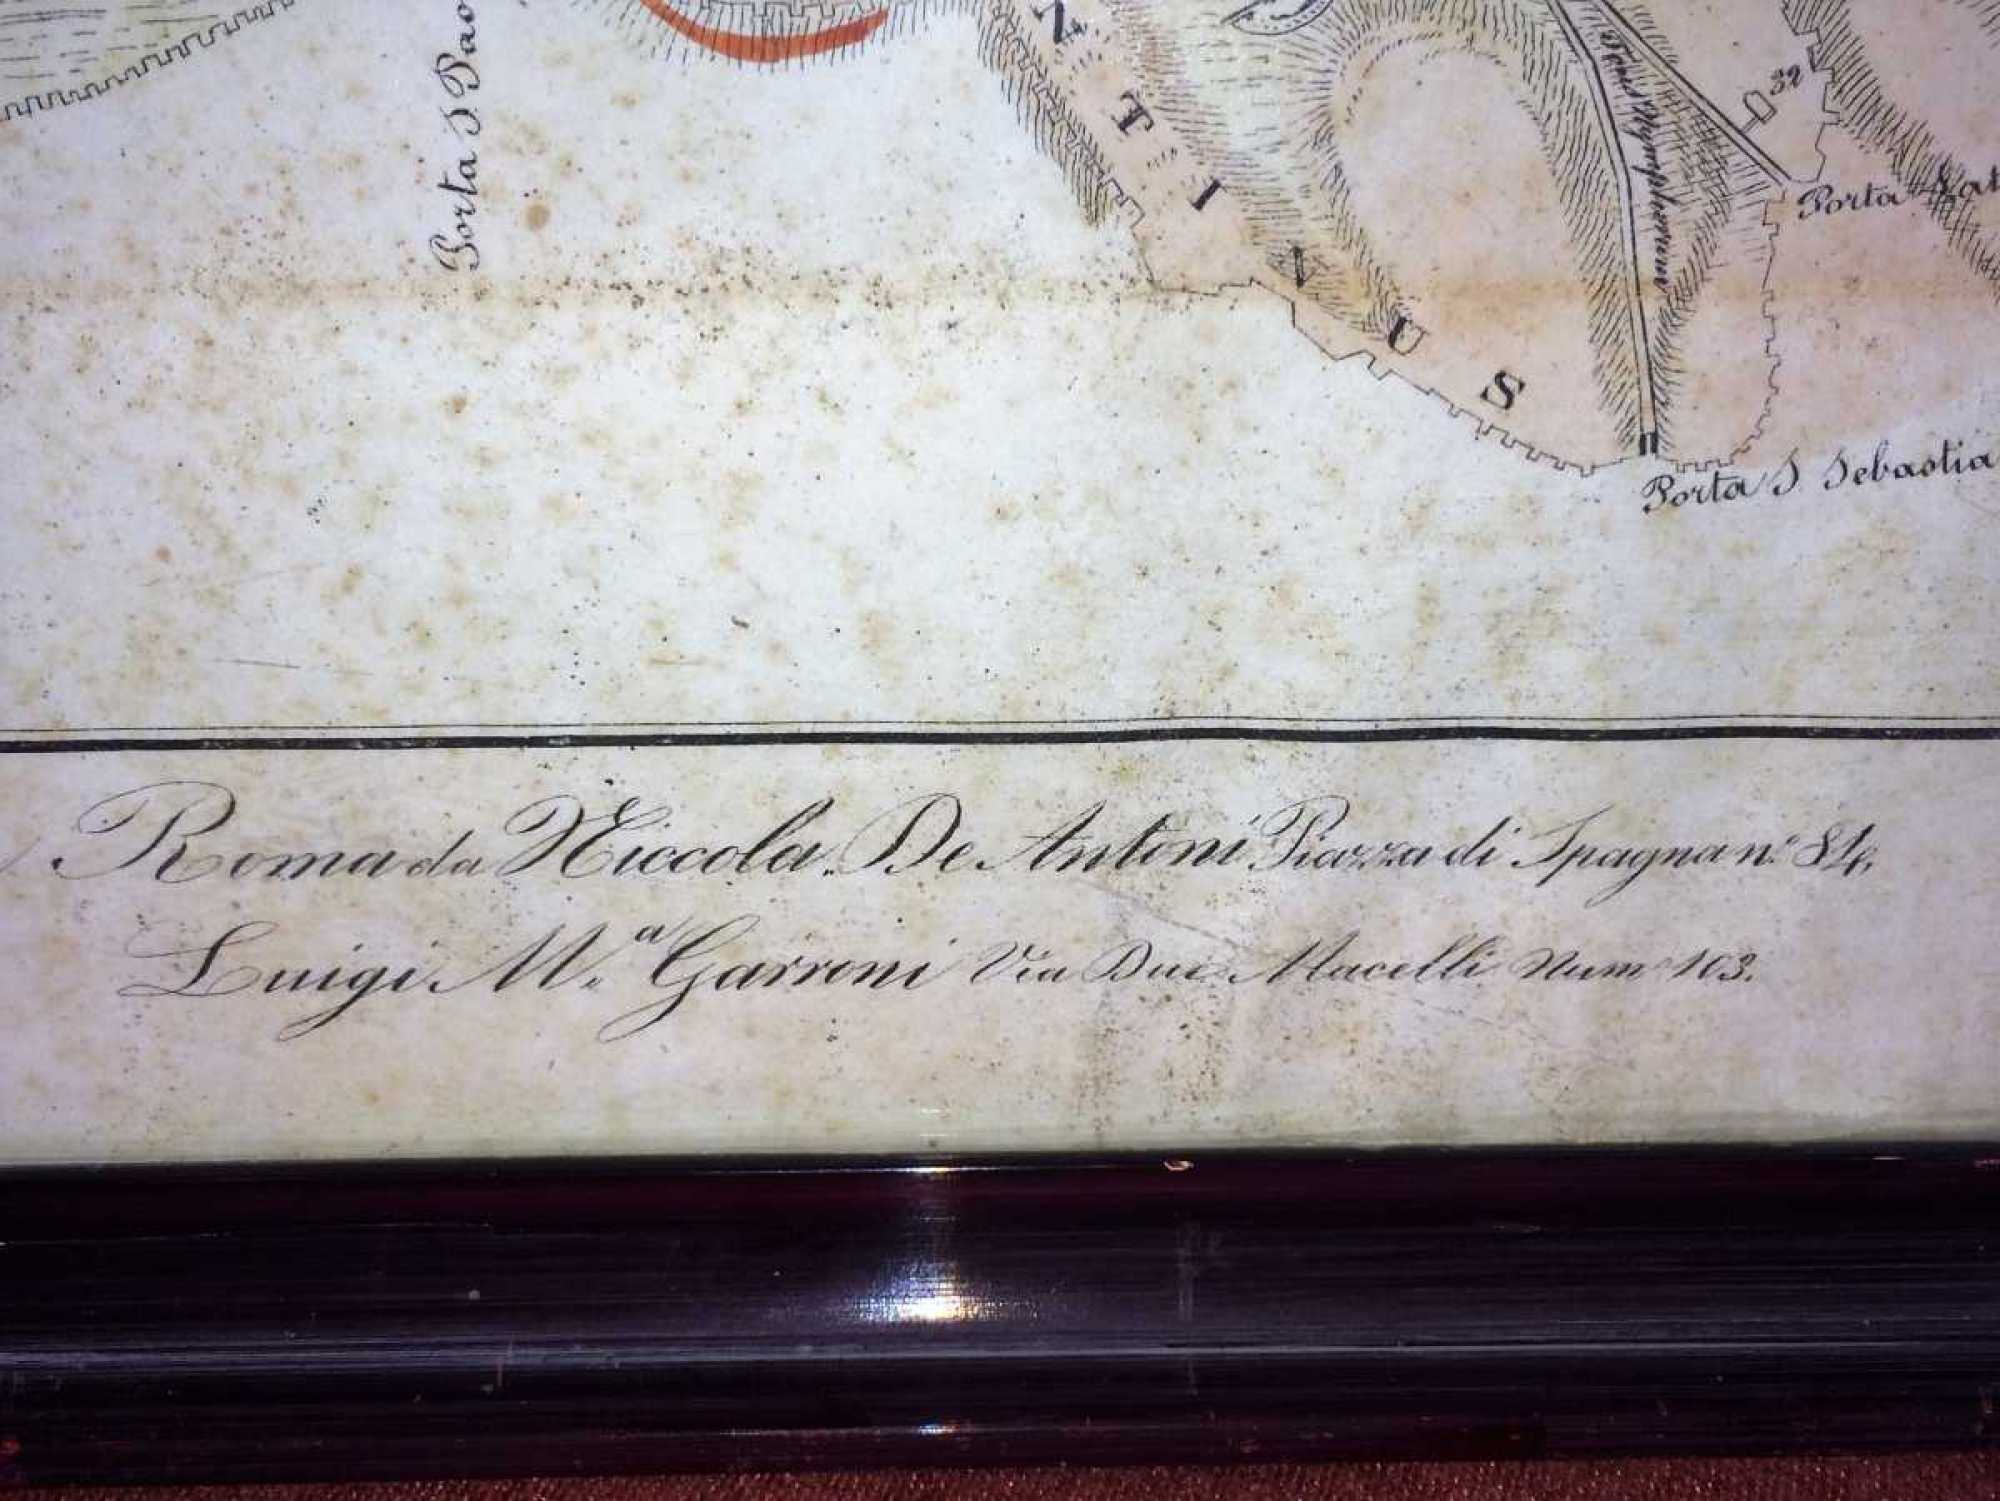 Porta S Pao
N T I N U S
32
Porta Lat
Porta S Sebastia
Roma da Niccola De Antoni Piazza di Spagna n.º
Luigi M.ª Garroni Via Due Macelli Num.º 103.